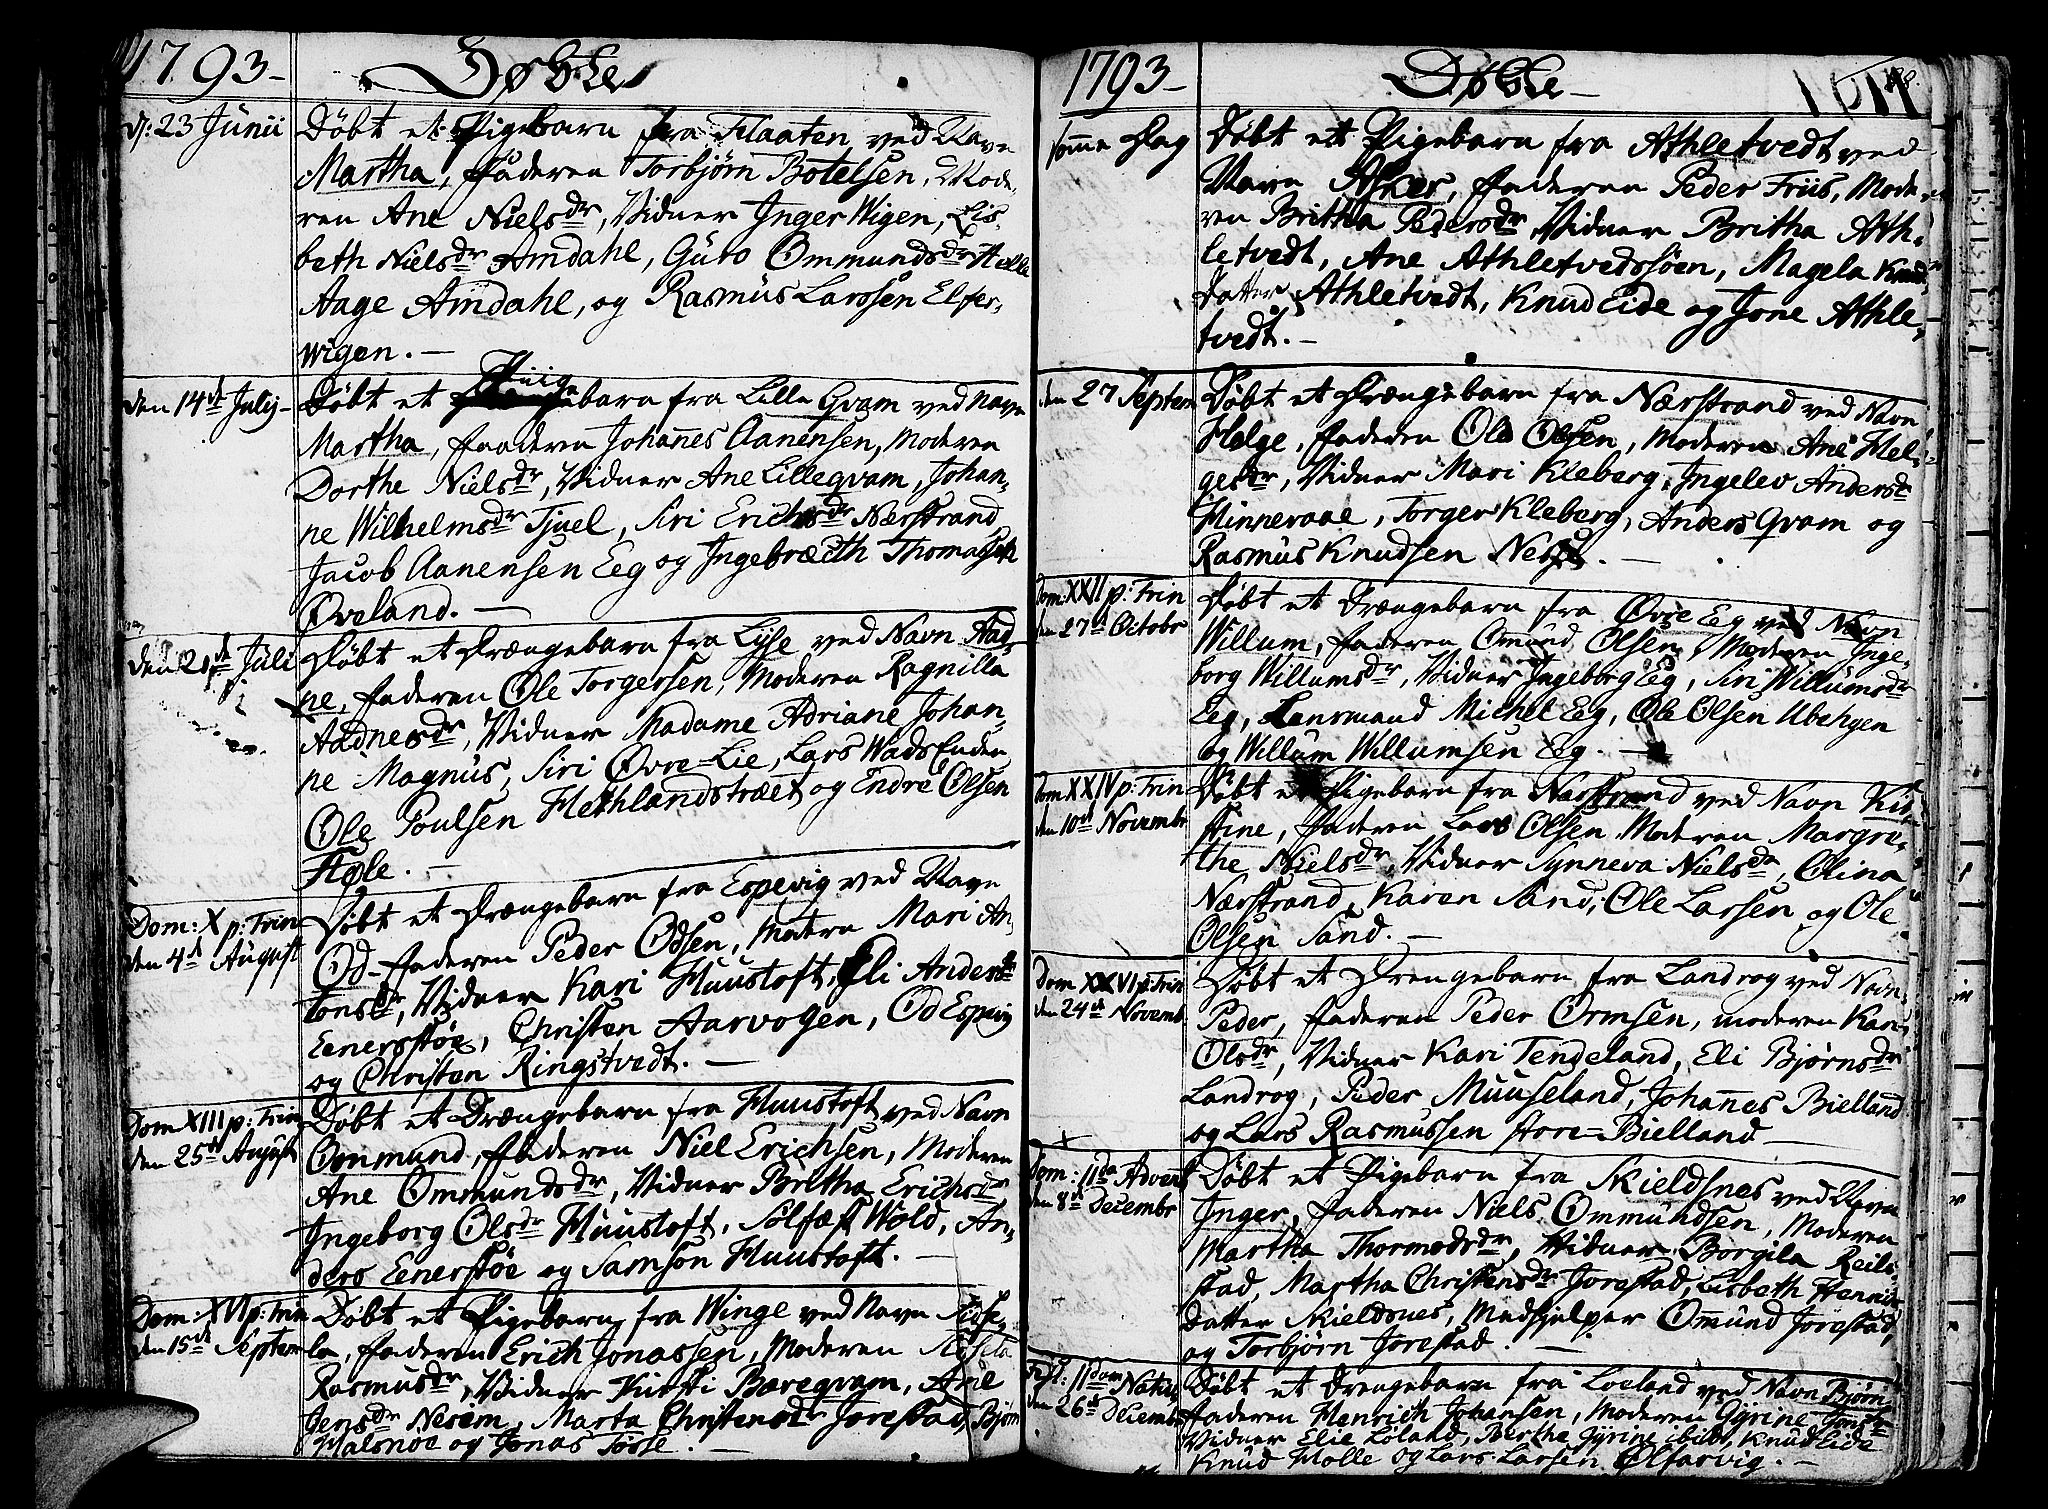 1793-
Døbte
d: 23 Junii
Døbt et Pigebarn fra Flaaten, ved Navn
Martha, Faderen Torbjørn Botelsen, Mode-
ren Ane Nielsdr, Vidner Inger Wigen, Lis-
beth Nielsdr Amdahl, Guro Ommundsdr Helle
Aage Amdahl, og Rasmus Larssen Elfer-
wigen. -
den 14de July-
Døbt et Piigebarn fra Lille Qvam ved Navn
Martha, Faaderen Johannes Aanensen, Moderen
Dorthe Nielsdr, Vidner Ane Lilleqvam, Johan-
ne Wilhelmsdr Tjuel, Siri Erichsdr Nærstrand
Jacob Aanensen Eeg og Ingebræcth Thomassen
Øveland. -
den 21de Juli
Døbt et Drængebarn fra Lyse ved Navn Aad-
ne, Faderen Ole Torgersen, Moderen Ragnilla
Aadnesdr, Vidner Madame Adriane Johan-
ne Magnus, Siri Øvre-Lie, Lars Wads Enden
Ole Poulsen Hethlandstræet og Endre Olsen
Høle. -
Dom: X p: Trin
den 4d August
Døbt et Drængebarn fra Espevig ved Navn
Od- Faderen Peder Odsen, Modren Mari An-
tonsdr, Vidner Kari Huustoft, Eli Andersdr
Eenerstøe, Christen Aarvogen, Od Espevig
og Christen Ringstvedt. -
Dom XIII p: Trin
den 25d August
Døbt et Drængebarn fra Huustoft ved Navn
Ommund, Faderen Niel Erichsen, Moderen
Ane Ommundsdr, Vidner Britha Erichsdr
Ingeborg Olsdr Huustoft, Sølfæst Wold, An-
ders Eenerstøe og Samson Huustoft. -
Dom: XVI p: Trin
den 15de Septem
Døbt et Pigebarn fra Winge ved Navn
la, Faderen Erich Jonassen, Moderen
Rasmusdr, Vidner Kirsti Bareqvam, Ane
Jensdr Nesem, Marta Christensdr Jorestad, Bjørn
Halsnøe og Jonas Tøsse. -
1793-
Døbte-
samme Dag
Døbt et Pigebarn fra Athletvedt ved
Navn Asser, Faderen Peder Friis, Mode-
ren Britha Pedersdr, Vidner Britha Ath-
letvedt, Ane Athletvedssøen, Magela Knuds
Datter Athletvedt, Knud Eide og Jone Athle-
tvedt. -
den 27 Septem
Døbt et Drængebarn fra Nærstrand ved Navn
Helge, Faderen Ole Olsen, Moderen Ane Hel-
gesdr, Vidner Mari Kleberg, Ingelev Andersdr
Hinneraae, Torger Kleberg, Anders Qvam og
Rasmus Knudsen
Dom: XXII p: Trin
den 27d Octobr
Døbt et Drængebarn fra Øvre Eeg ved Navn
Willum, Faderen Omund Olsen, Moderen Inge-
borg Willumsdr, Vidner Ingeborg Eeg, Siri Willumsdr
Eeg, Lensmand Michel Eeg, Ole Olsen Ubehgen
og Willum Willumsen Eeg. -
Dom XXIV p: Trin
den 10d Novembr
Døbt et Pigebarn fra Nærstrand ved Navn Kir-
stine, Faderen Lars Olsen Moderen Margre-
the Nielsdr, Vidner Synneva Nielsdr, Olina
Nærstrand, Karen Sand, Ole Larsen og Ole
Olsen Sand. -
Dom XXVI p: Trin
den 24d Novemb.
Døbt et Drengebarn fra Landrog ved Navn
Peder, Faderen Peder Ormsen, moderen Kari
Olsdr, Vidner Kari Tendeland, Eli Bjørnsdr
Landrog, Peder Muuseland, Johannes Bielland
og Lars Rasmussen store-Bielland -
Dom: IIda Advent
den 8d Decembr
Døbt et Pigebarn fra Kieldsnes ved Navn
Inger, Faderen Niels Ommundsen, Moderen
Martha Thormodsdr, Vidner Borgila Reil-
stad, Martha Christensdr Jorestad, Lisbeth Henrich
Datter Kieldsnes, Medhjelper Ommund Jorestad,
og Torbjørn Jorestad. -
den 26d Decembr
Døbt et Drengebarn fra Loeland ved Navn Bjørn
Faderen Henrich Johansen, Moderen Gyrine
Vidner Elie Løland, Bertha Gyrine ibid, Knud Eide
Knud Molle og Lars Larsen Ølfarvig. -